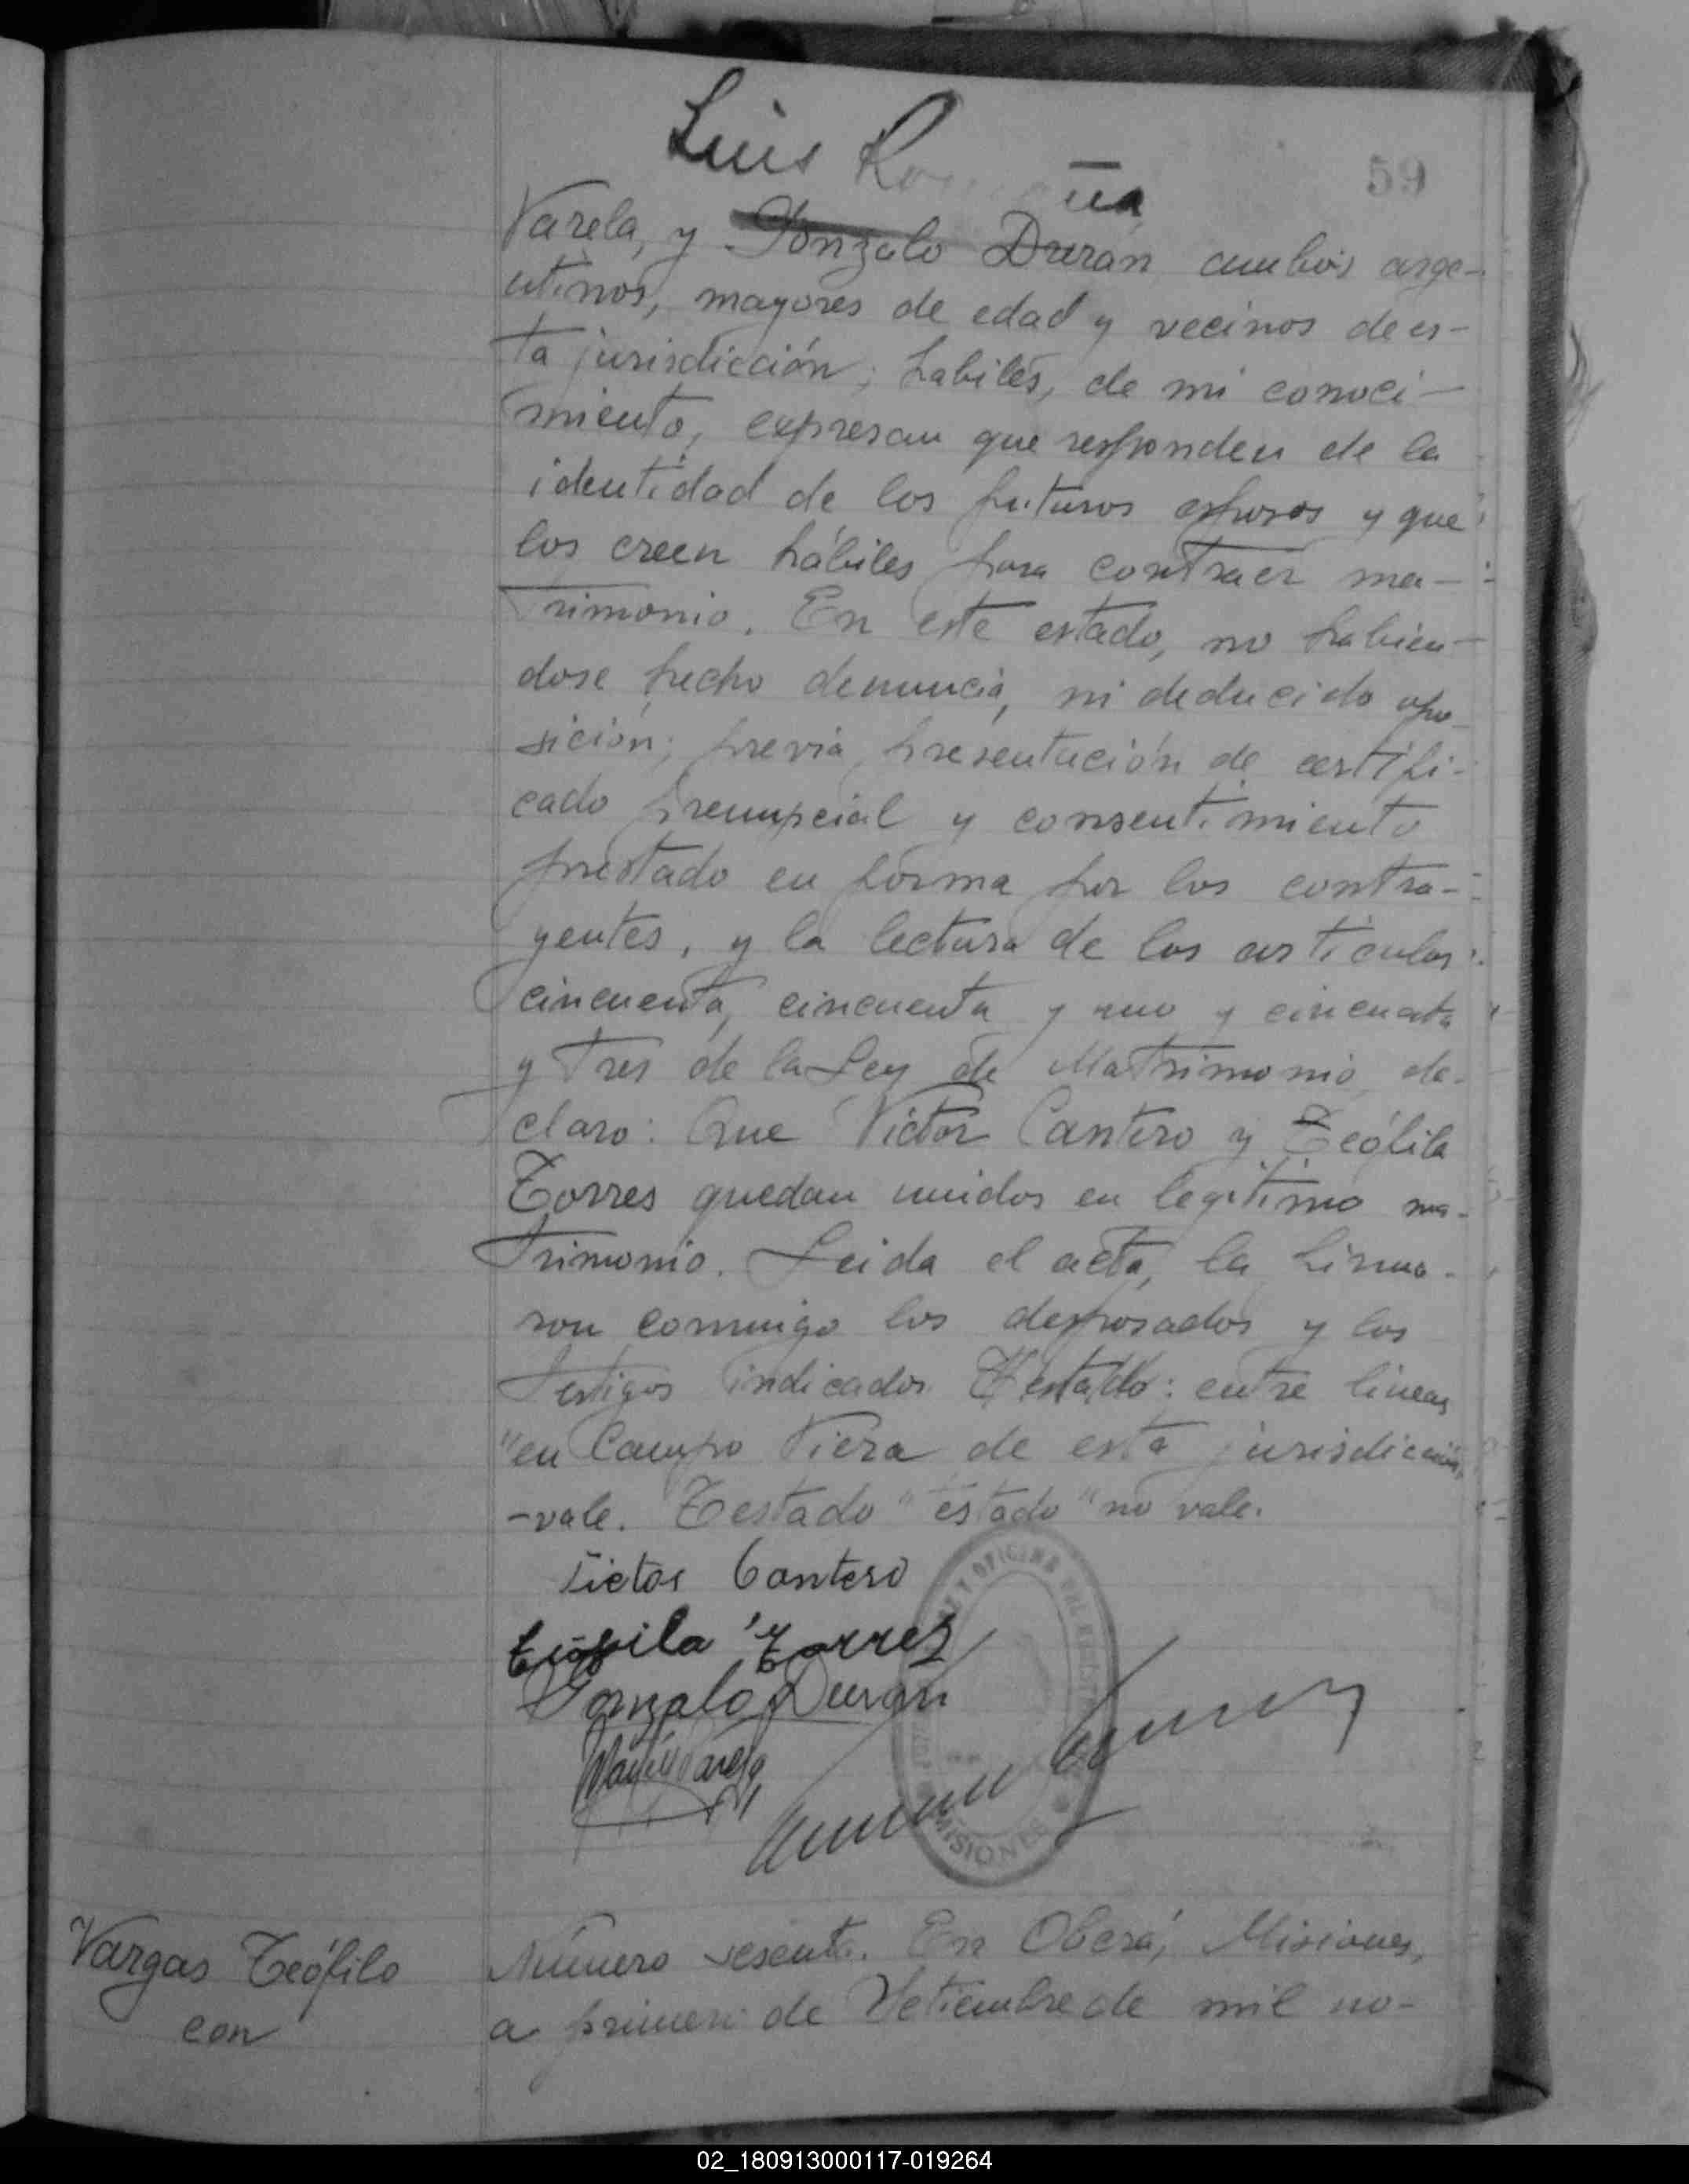 Luis
59
Varela, y Gonzalo Durán ambos arge-
ntinos, mayores de edad y vecinos de es-
ta jurisdicción; habiles, de mi conoci-
miento, expresan que responden de la
identidad de los futuros esposos y que
los creen hábiles para contraer ma-
trimonio. En este estado, no habien-
dose hecho denuncia, ni deducido opo-
sición; previa presentación de certifi-
cado prenupcial y consentimiento
prestado en forma por los contra-
yentes, y la lectura de los articulos
cincuenta, cincuenta y uno y cincuenta
y tres de la Ley de Matrimonio de-
claro: Que Victor Cantero y Teófila
Torres quedan unidos en legitimo ma-
trimonio. Leida el acta, la firma-
ron conmigo los desposados y los
testigos indicados. Testado: entre lineas
"en Campo Viera de esta jurisdicción,
-vale. Testado "estado" no vale.
Victor Cantero
Teófila Torres
Gonzalo Durán
Varela
OFICINA DEL REGISTRO
MISIONES
Vargas Teófilo
con
Número sesenta. En Oberá, Misiones,
a primero de Setiembre de mil no-
02_180913000117-019264